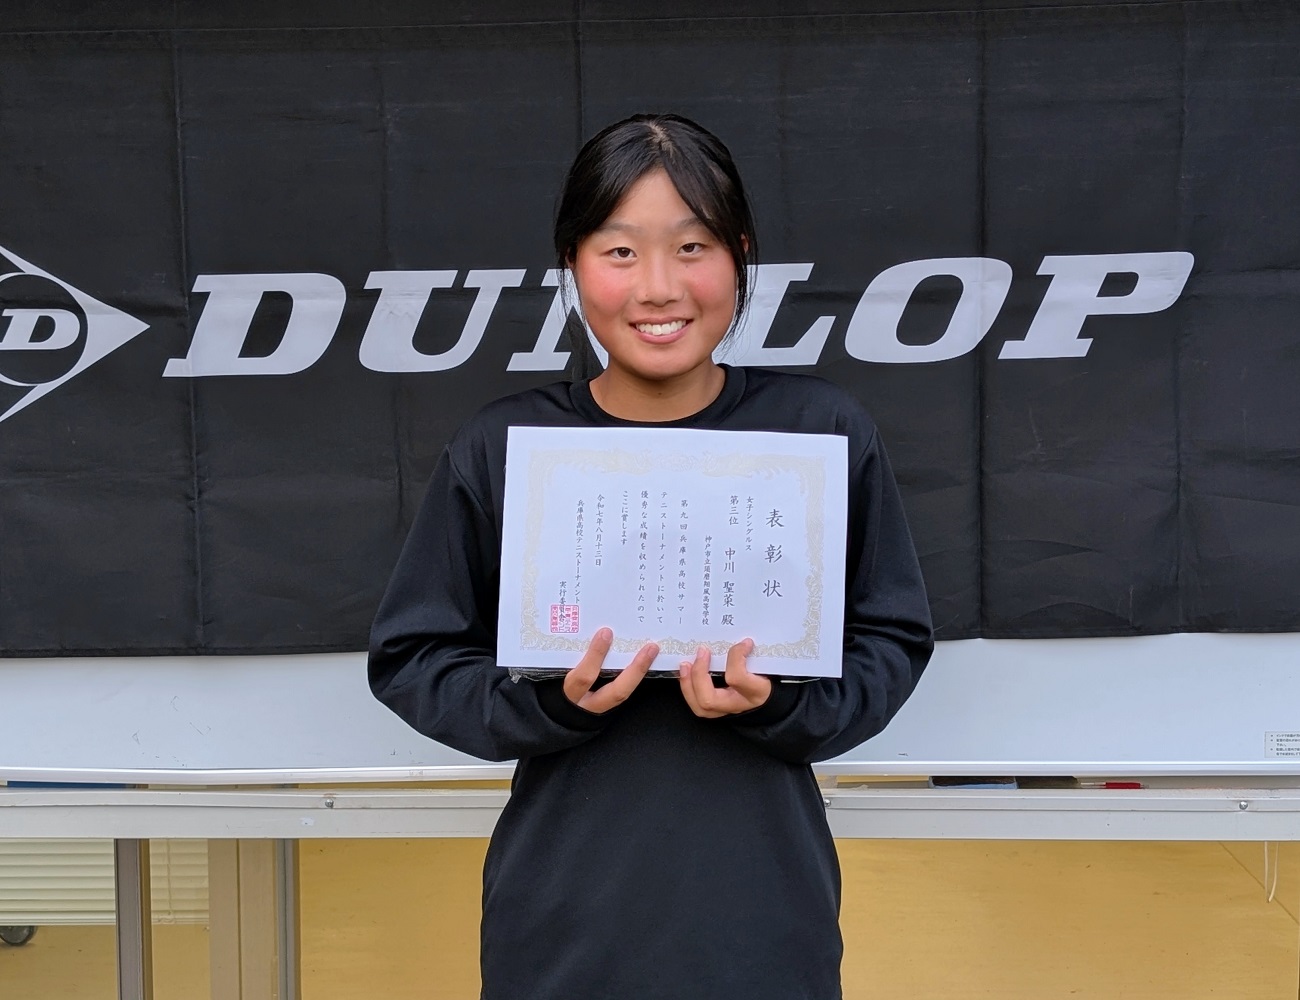 DUNLOP
D
表彰状
女子シングルス
第三位
中川 聖菜 殿
神戸市立須磨翔風高等学校
第九回兵庫県高校サマー
テニストーナメントに於いて
優秀な成績を収められたので
ここに賞します
令和七年八月十三日
兵庫県高校テニストーナメント
実行委員会